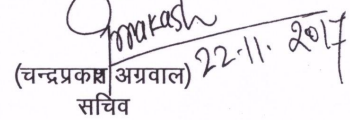 Prakash
22.11.2017
(चन्द्रप्रकाश अग्रवाल)
सचिव